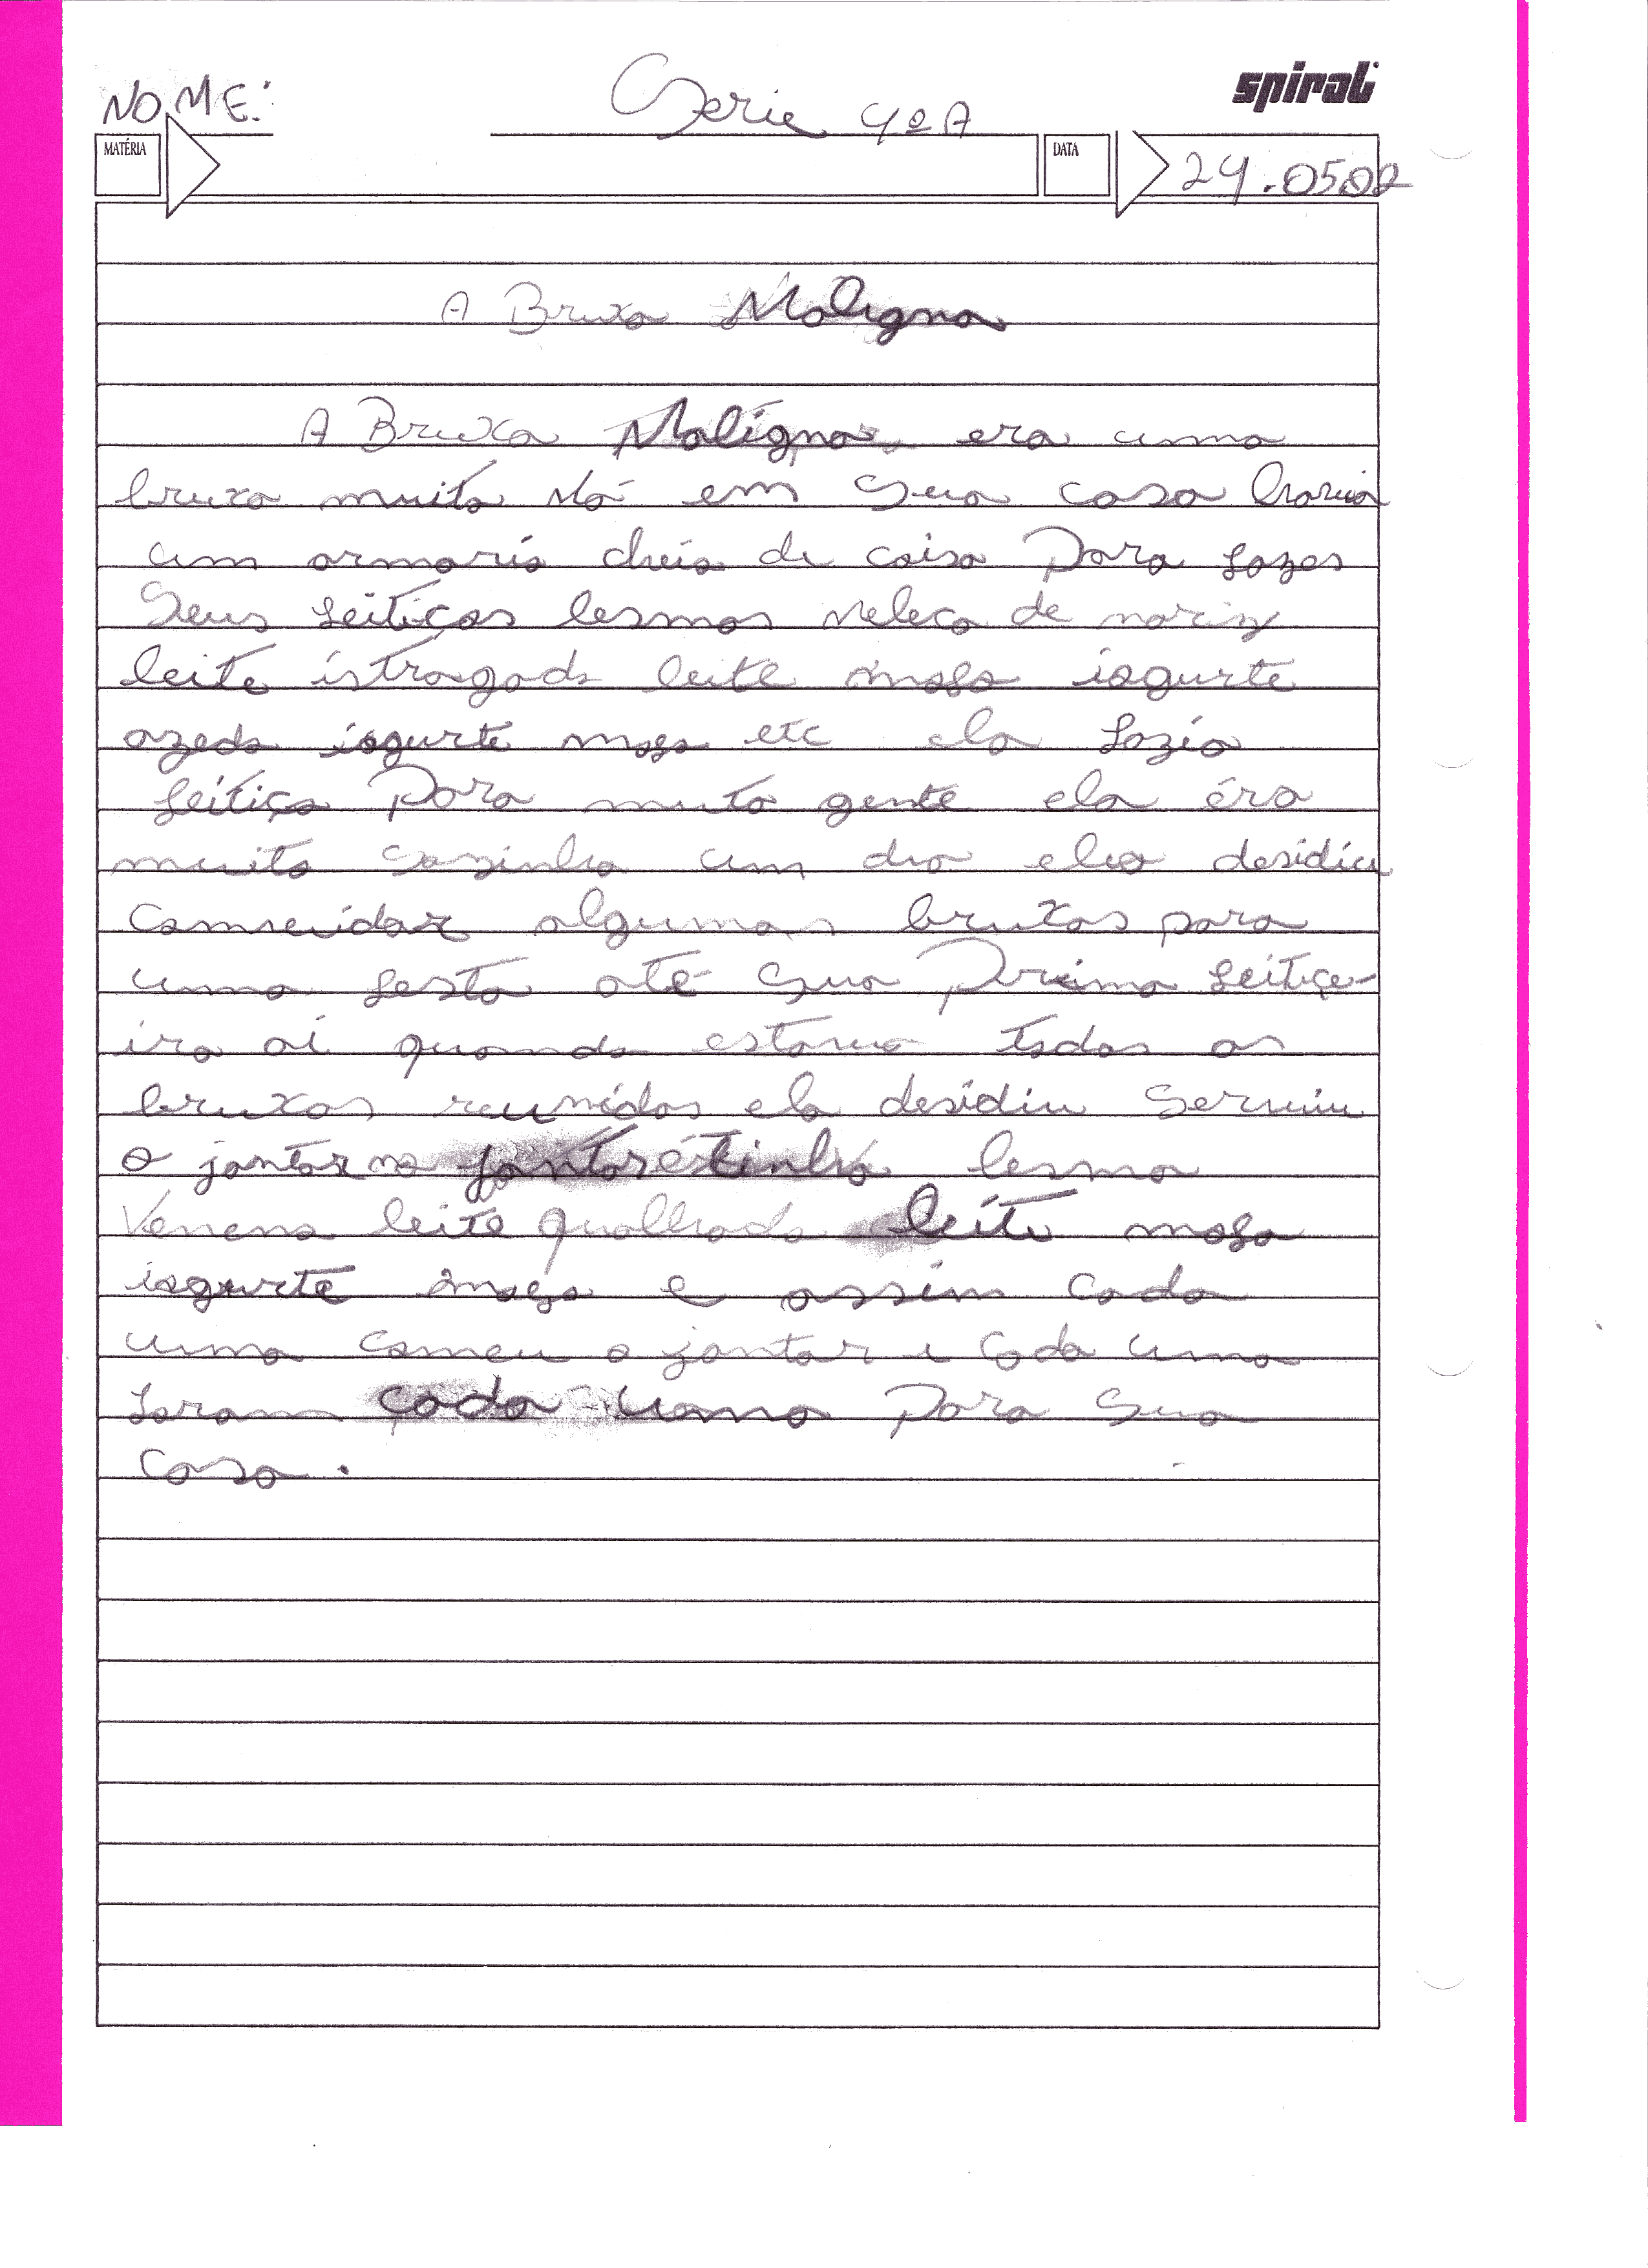 spiral
NOME: Serie 4º A
MATÉRIA DATA 24.05.02
A Bruxa Maligna
A Bruxa Maligna era uma
bruxa muito Má em sua casa havia
um armario cheio de coisa Para fazer
Seus feitiços lesmas meleca de nariz
leite istragado leite mofo iogurte
azedo iogurte mofo etc ela fazia
feitiço Para muita gente ela éra
muito sozinha um dia ela desidiu
comvidar algumas bruxas para
uma festa até sua Prima feitice-
ira aí quando estava todas as
bruxas reunidas ela desidiu serviu
o jantar no jantar tinha lesma
Veneno leite qualhado leite mofo
iogurte mofo e assim cada
uma comeu o jantar i cada uma
foram cada uma Para sua
casa.